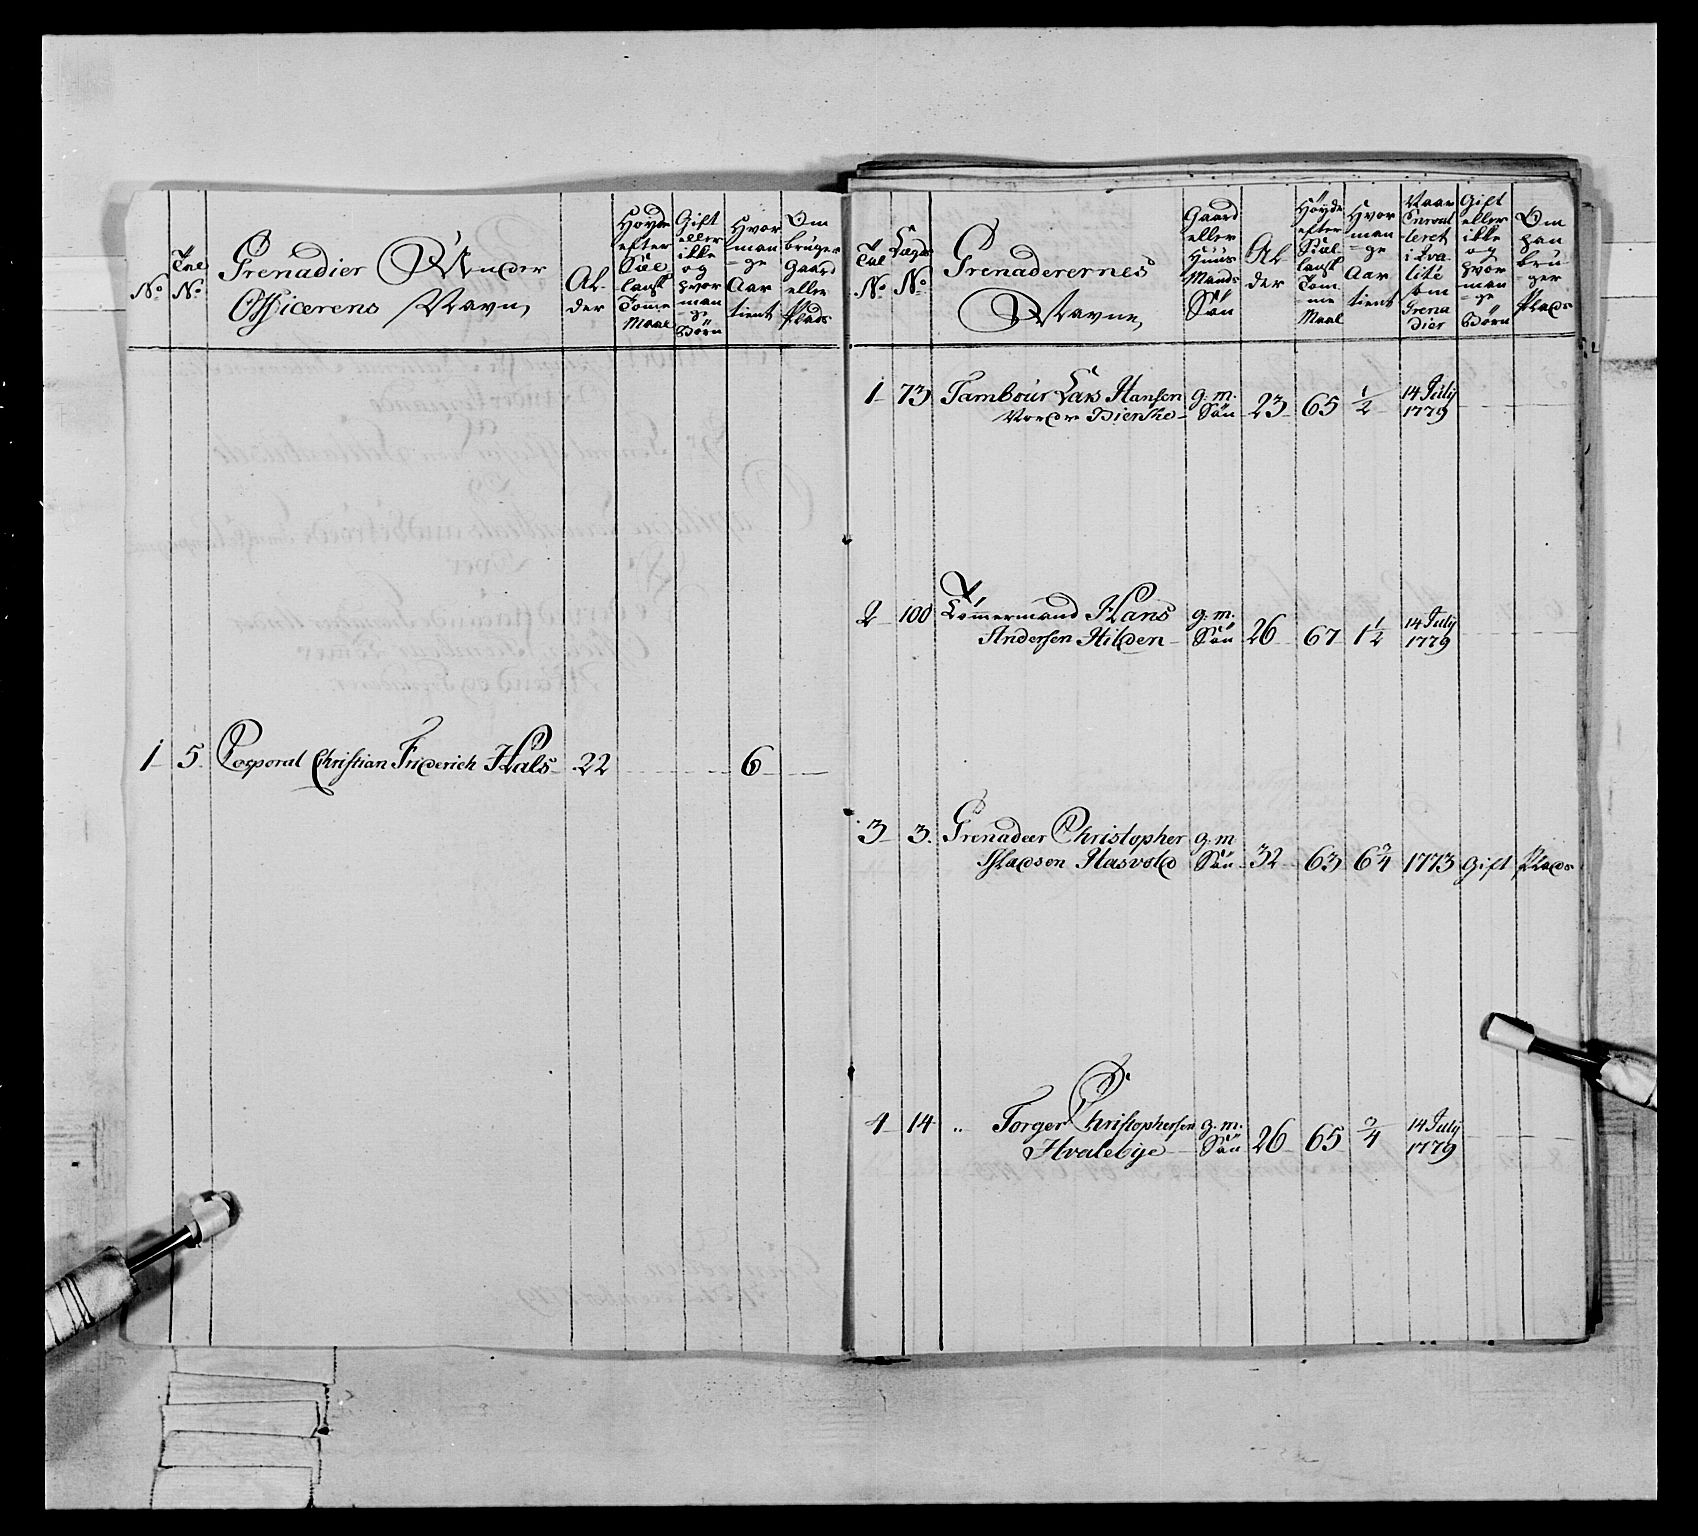 No
Tal
No
Grenadier Under
Officerens Navn
Al
der
Høyde
efter
Siæl
lansk
Tomme
Maal
Gift
eller
ikke
og
hvor
man
ge
Børn
Hvor
man
ge
Aar
tient
Om
bruger
Gaard
eller
Plads
1 5. Corporal Christian Friderich Hals 22 6
Tal
No
Lægs
No
Grenaderernes
Navne
Gaard
eller
Huus
Mands
Søn
Al
der
Høyde
efter
Siæl
lansk
Tom
me
Maal
Hvor
man
ge
Aar
tient
Naar
Enroul
leret
i Qva
lité
som
Grena
dier
Gift
eller
ikke
og
hvor
man
ge
Børn
Om
han
bru
ger
Plads
1 73 Tambour Lars Hansen g. m. 14 July
Søn 23 65 1/2 1779
2 100 Tømmermand Hans g. m. 14 July
Andersen Hilden Søn 26 67 1 1/2 1779
3 3. Grenadeer Christopher g. m
Hasvold Søn 32 63 6 3/4 1773 Gift Plads
4 14 " Torger Christophersen g. m. 14 July
Hvalebye Søn 26 65 3/4 1779